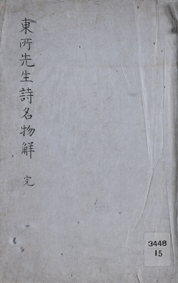 東所先生詩名物解 完
3448
15